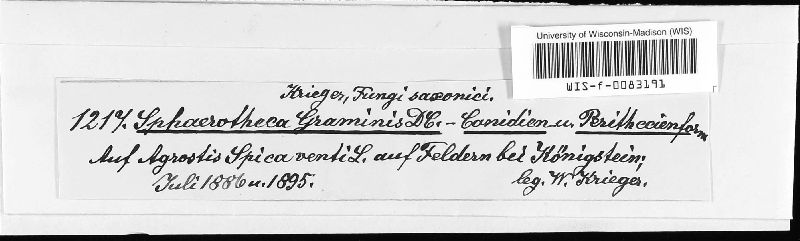 University of Wisconsin-Madison (WIS)
WIS-f-0083191
Krieger, Fungi saxonici.
1217. Sphaerotheca Graminis DC. - Conidien u. Perithecienform
Auf Agrostis Spica venti L. auf Feldern bei Königstein;
Juli 1886 u. 1895.
leg. W. Krieger.